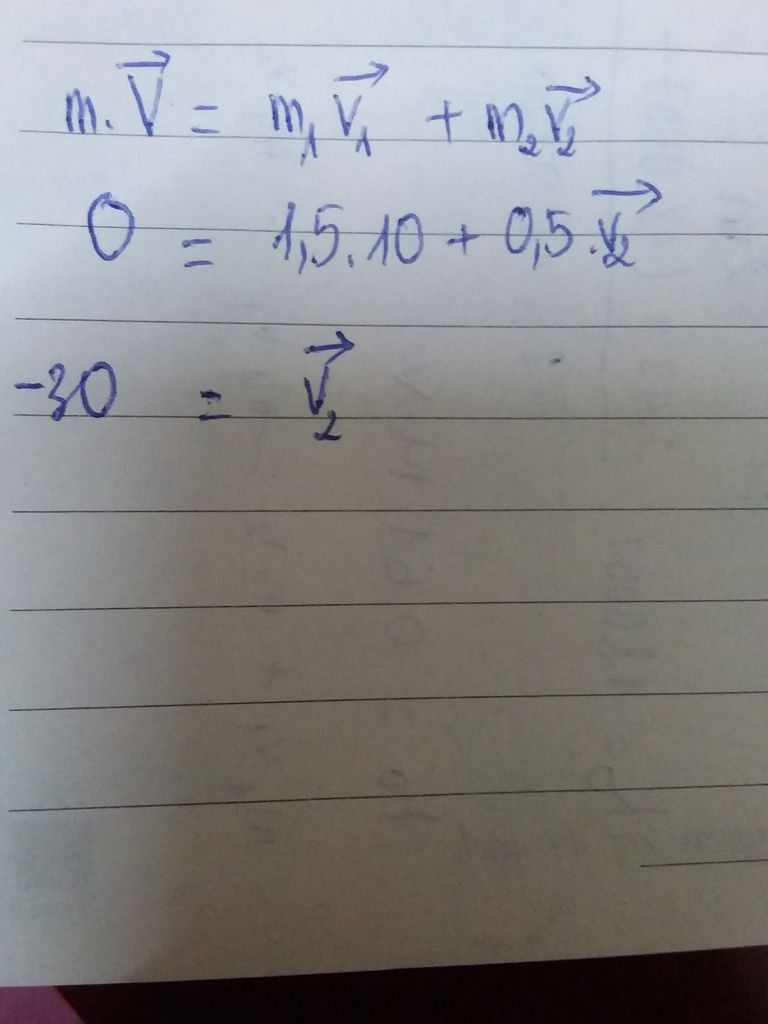 m. V⃗ = m₁ v⃗₁ + m₂ v⃗₂
0 = 1,5.10 + 0,5.v⃗₂
-30 = v⃗₂